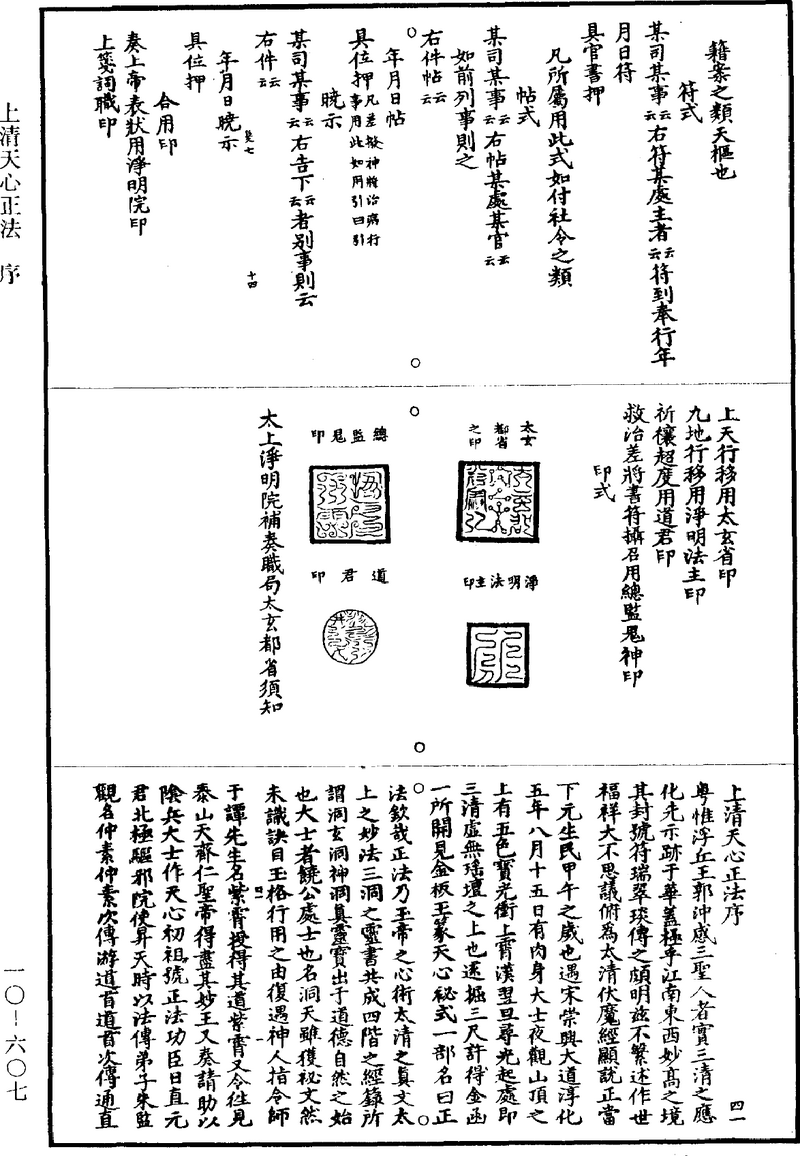 籍案之類天樞也
符式
某司某事云云右符某處主者云云符到奉行年
月日符
具官書押
凡所屬用此式如付社令之類
帖式
某司某事云云右帖某處某官云云
如前列事則之
右件帖云云
年月日帖
具位押凡差撥神將治病行
事用此如用引曰引
曉示
某司某事云云右告下云云者别事則云
右件云云
年月日曉示
具位押
合用印
奏上帝表狀用淨明院印
上箋詞職印
上天行移用太玄省印
九地行移用淨明法主印
祈禳超度用道君印
救治差將書符攝召用總監鬼神印
印式
太玄
都省
之印
淨明法主印
總監鬼印
道君印
太上淨明院補奏職局太玄都省須知
上清天心正法序
四一
粤惟浮丘王郭沖感三聖人者實三清之應
化先示跡于華蓋極平江南東西妙高之境
其封號符瑞翠琰傳之頗明兹不繁述作世
福祥大不思議俯為太清伏魔經顯說正當
下元生民甲午之歲也遇宋崇興大道淳化
五年八月十五日有肉身大士夜觀山頂之
上有五色寶光衝上霄漢翌旦尋光起處即
三清虛無瑤壇之上也遂掘三尺許得金函
一所開見金板玉篆天心秘式一部名曰正
法欽哉正法乃玉帝之心術太清之真文太
上之妙法三洞之靈書共成四階之經籙所
謂洞玄洞神洞真靈寶出于道德自然之始
也大士者饒公處士也名洞天雖獲祕文然
未識訣目玉格行用之由復遇神人指令師
于譚先生名紫霄授得其道紫霄又令往見
泰山天齊仁聖帝得盡其妙王又奏請助以
陰兵大士作天心初祖號正法功臣日直元
君北極驅邪院使昇天時以法傳弟子朱監
觀名仲素仲素次傳游道首道首次傳通直
上清天心正法 序
一〇-六〇七